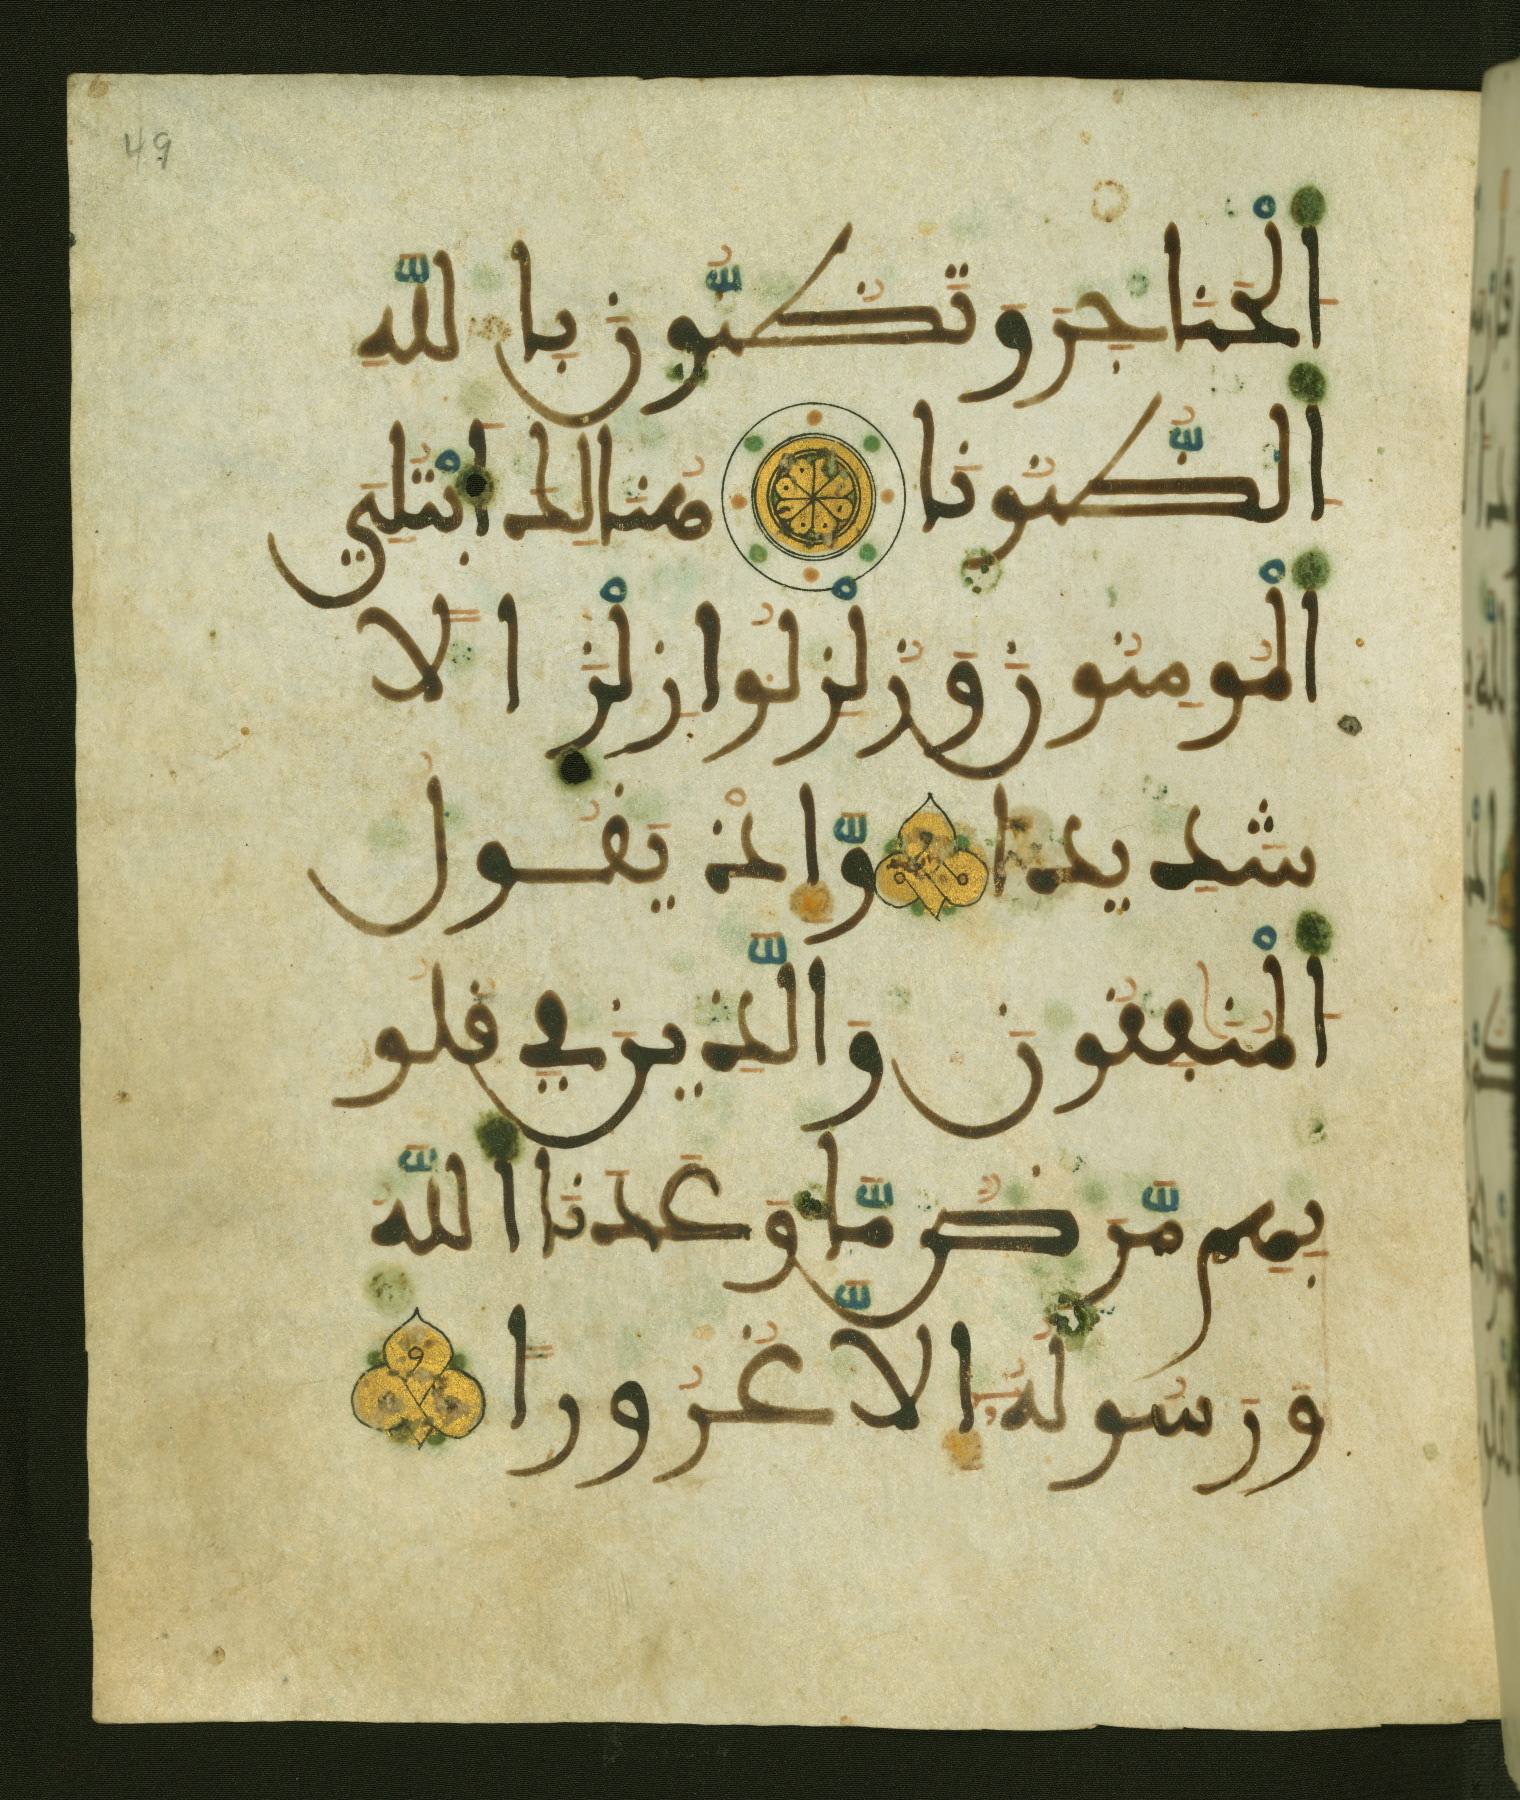 49
اَلْحَنَاجِرَ وَتَظُنُّونَ بِاللَّهِ
اِلظُّنُونَا هُنَالِكَ اَبْتُلِيَ
اَلْمُومِنُونَ وَزُلْزِلُواْ زِلْزَالاً
شَدِيداً وَّإِذْ يَقُولُ
اِلْمُنَٰفِقُونَ وَالَّذِينَ فِي قُلُو
بِهِم مَّرَضٌ مَّا وَعَدَنَا اَللَّهُ
وَرَسُولُهُۥ إِلاَّ غُرُوراً